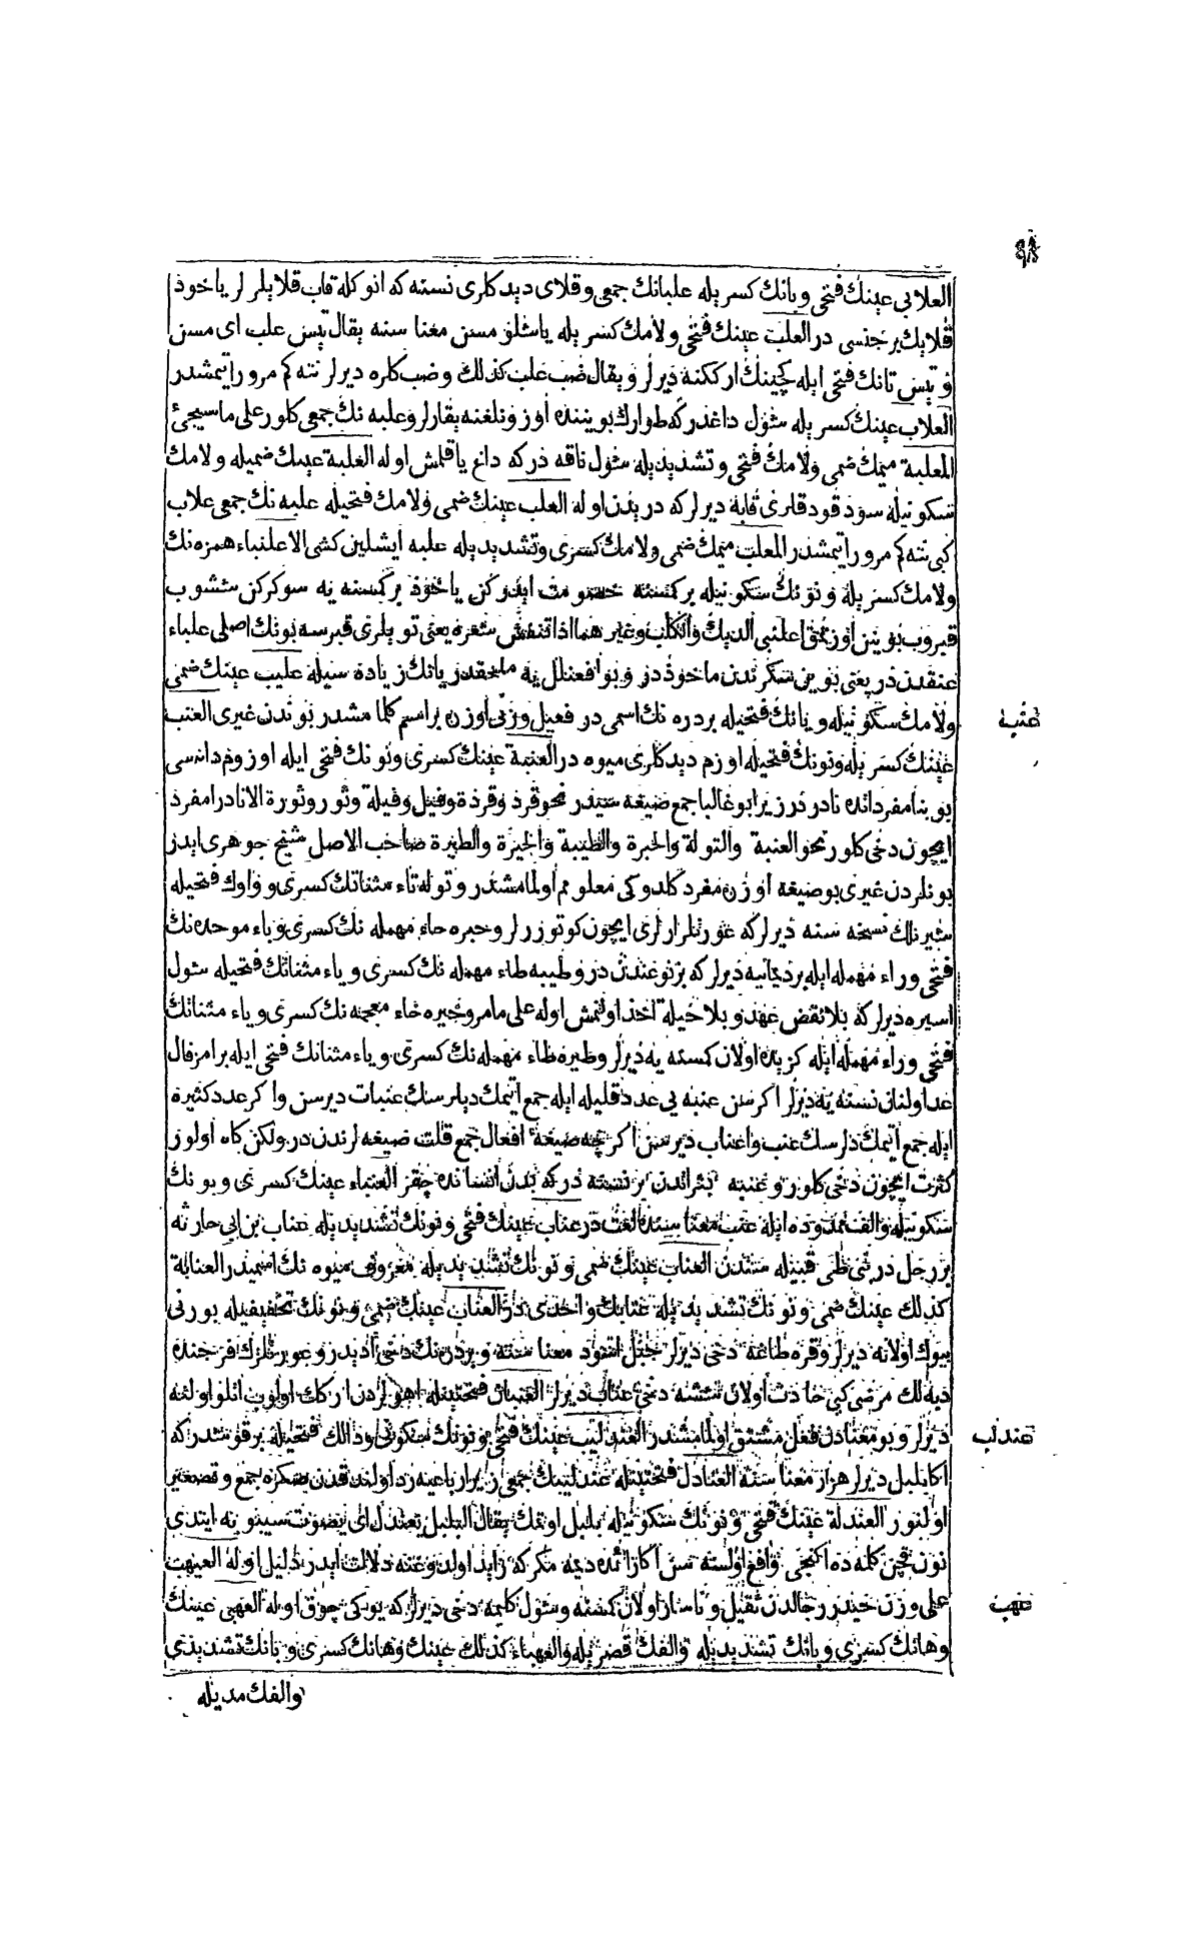 العلابي عينك فتحى و بانك كسر يله علبانك جمعى و قلاى ديدكلرى نسته كه انوكله قاب قلايلرلر ياخوذ
قلايك بر جنسى در العلب عينك فتحى ولامك كسر يله ياشلو مسن معنا سنه يقال تيس علب اى مسن
و تيس تانك فتحى ايله كچينك ارككنه ديرلر و يقال ضب علب كذلك و ضب كلره ديرلر نته كم مرورا يتمشدر
العلاب عينك كسر يله شول داغدر كه طوارك بويننده اوزونلغنه يقارلر و علبه نك جمعى كلور على ما سيجئ
المعلبة ميمك ضمى ولامك فتحى و تشديد يله شول ناقه در كه داغ ياقلمش اوله العلبة عينك ضميله ولامك
سكونيله سود قودقلرى قابه ديرلر كه دريدن اوله العلب عينك ضمى ولامك فتحيله علبه نك جمعى علاب
كبى نته كم مرورا يتمشدر المعلب ميمك ضمى ولامك كسرى و تشديد يله علبه ايشلين كشى الاعلنباء همزه نك
ولامك كسر يله و نونك سكونيله بر كمسنه خصومت ايدركن ياخوذ بر كمسنه يه سوكركن ششوب
قبروب بوينن اوزتمق اعلنبى الديك والكلب و غيرهما اذا تنفش شعره يعنى تويلرى قبرسه بونك اصلى علباء
عنقدن در يعنى بوين سكرندن ماخوذ در و بو افعنلل يه ملحقدر يانك زياده سيله عليب عينك ضمى
ولامك سكونيله و يانك فتحيله بر دره نك اسمى در فعيل وزنى اوزره بر اسم كلمامشدر بوندن غيرى العنب
عنب
عينك كسر يله و نونك فتحيله اوزم ديدكلرى ميوه در العنبة عينك كسرى و نونك فتحى ايله اوزوم دانسى
بو بنا مفردانده نادر در زيرا بو غالبا جمع صيغه سيدر نحو قرد و قردة و فيل و فيلة و ثور و ثورة الا نادرا مفرد
ايچون دخى كلور نحو العنبة والتولة والحبرة والطيبة والخيرة والطيرة صاحب الاصل شيخ جوهرى ايدر
بونلردن غيرى بو صيغه اوزره مفرد كلدوكى معلومم اولمامشدر و توله تاء مثناتك كسرى و واوك فتحيله
شيرنلك نسخه سنه ديرلر كه عورتلر ارلرى ايچون كوتوررلر و حبره حاء مهمله نك كسرى و باء موحده نك
فتحى و راء مهمله ايله بر ديمانيه ديرلر كه بر نوعندن در و طيبه طاء مهمله نك كسرى و ياء مثناتك فتحيله شول
اسيره ديرلر كه بلا نقض عهد و بلا حيلة اخذ اولنمش اوله على ما مر و خيره خاء معجمه نك كسرى و ياء مثناتك
فتحى و راء مهمله ايله كزيده اولان كمسنه يه ديرلر و طيره طاء مهمله نك كسرى و ياء مثناتك فتحى ايله برامز فال
عد اولنان نسنه يه ديرلر اكر سن عنبه يى عدد قليله ايله جمع ايتمك ديلرسنك عنبات ديرسن واكر عدد كثيره
ايله جمع ايتمك دلرسك عنب و اعناب ديرسن اكرچه صيغه افعال جمع قلت صيغه لرندن در ولكن كاه اولور
كثرت ايچون دخى كلور و عنبه بثراتدن بر نسنه در كه بدن انسانده چقر العنباء عينك كسرى و بونك
سكونيله و الف ممدوده ايله عنب معنا سنده لغت در عناب عينك فتحى و نونك تشديد يله عناب بن ابى حارثه
بر رجل در بنى طى قبيله سندن العناب عينك ضمى و نونك تشديد يله معروف ميوه نك اسميدر العنابة
كذلك عينك ضمى و نونك تشديد يله عنابك واحدى در العناب عينك ضمى و نونك تخفيفيله بورنى
بيوك اولانه ديرلر و قره طاغه دخى ديرلر جبل اسود معنا سنه
ديرلر و بو معنادن فعل مشتق اولمامشدر العندليب عينك فتحى و نونك سكونى و دالك فتحيله بر قوشدر كه
عندلب
اكا بلبل ديرلر هزار معنا سنه العنادل فتحتيله عندليبك جمعى زيرا رباعيه رد اولندقدن صكره جمع و تصغير
اولنور العندلة عينك فتحى و نونك سكونيله بلبل اوتمك يقال البلبل يعندل اى يصوت سيبويه ايتدى
نون قچن كلمه ده ايكنجى واقع اولسه سن اكا زائده ديمه مكر كه زايد اولدوغنه دلالت ايدر دليل اوله العيهب
على وزن حيدر رجالدن ثقيل و ناساز اولان كمسنه و شول كليمه دخى ديرلر كه يوكى چوق اوله العهبى عينك
عهب
وهانك كسرى و بانك تشديد يله و الفك قصر يله والعهباء كذلك عينك وهانك كسرى و بانك تشديدى
والفك مديله